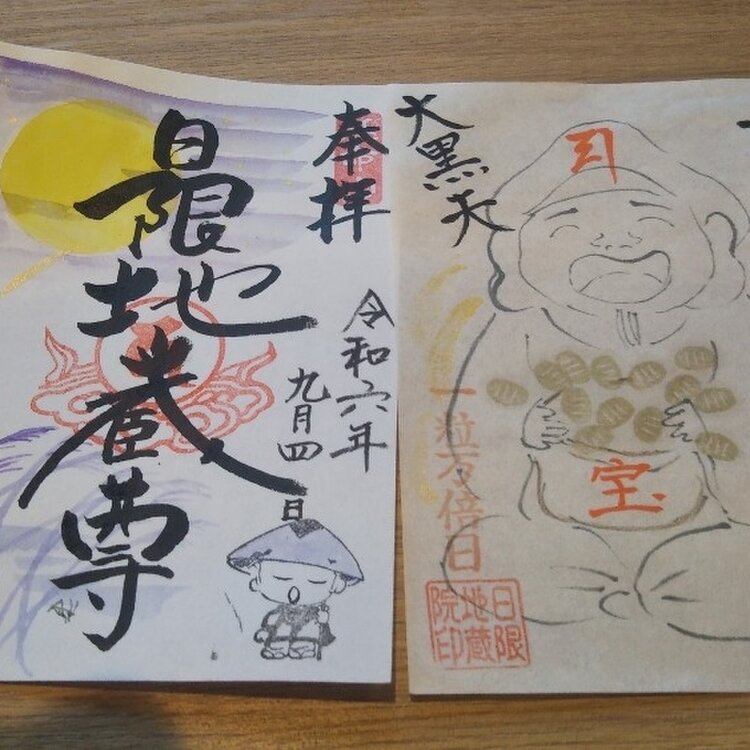 奉拝
日限地蔵尊
令和六年
九月四日
大黒天
一粒万倍日
宝
日限
地蔵
院印